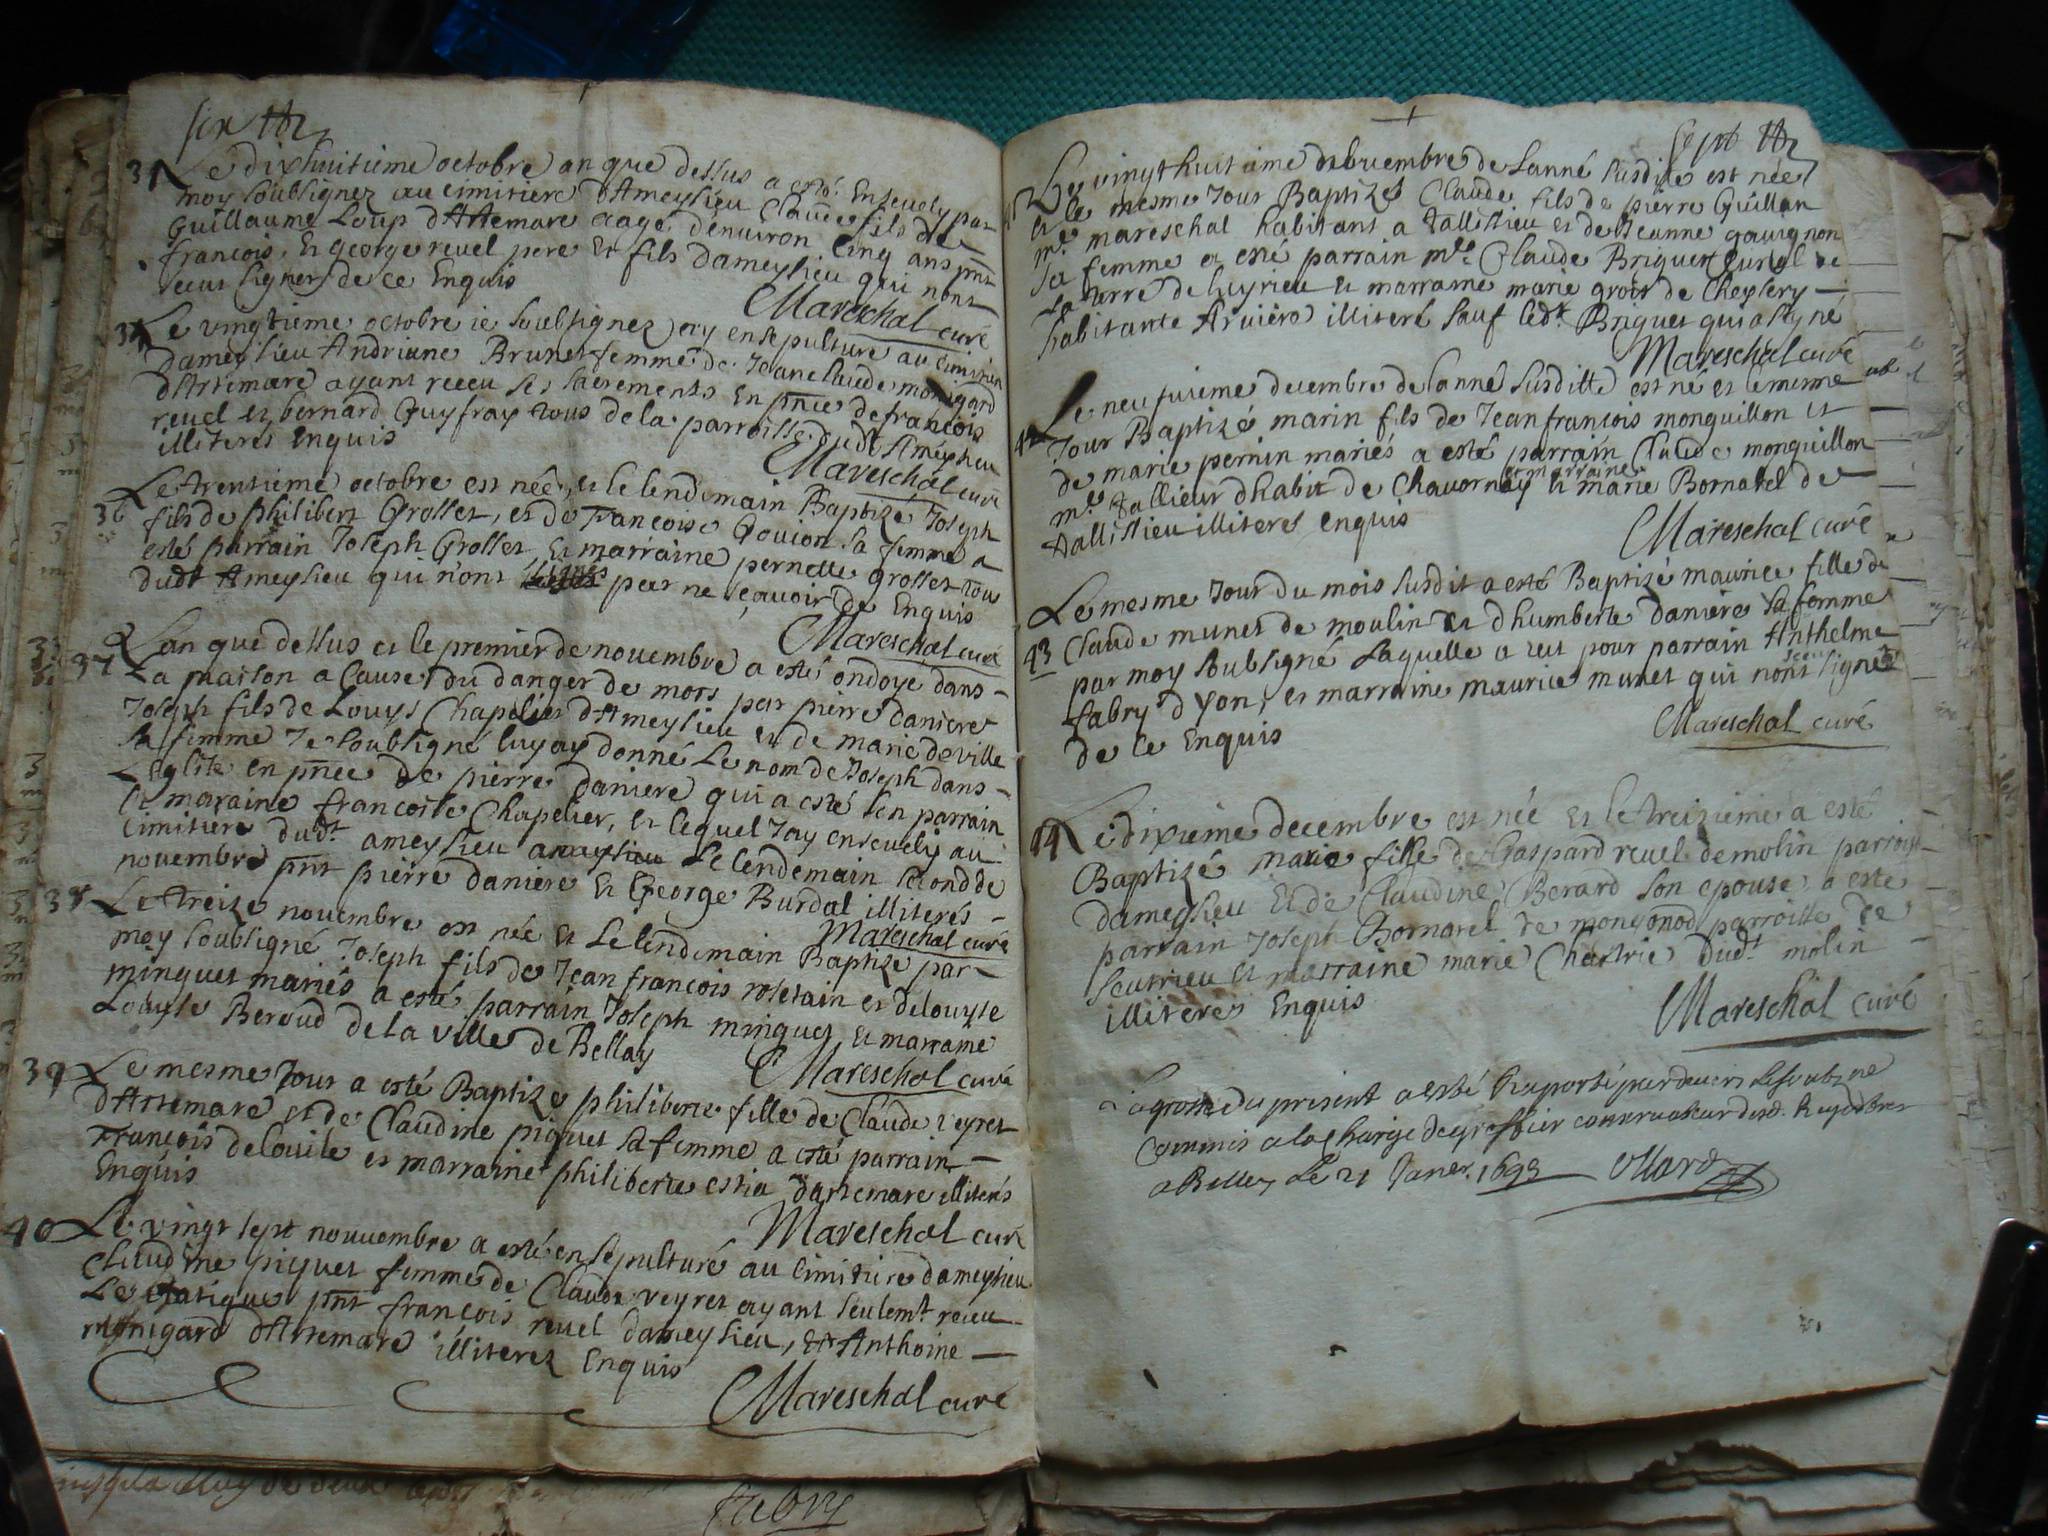 six
34 Le dixhuitieme octobre an que dessus a esté Ensevely par
moy soubsignez au cimitiere d'Ameysieu Claude fils de
Guillaume Loup d'Artemare aagé d'environ Cinq ans pnt
francois, et george revel pere et fils dameysieu qui nont
sceut signer de ce Enquis
Mareschal curé
35 Le vingtieme octobre ie soubsignez ay ensepulture au cimitiere
dameysieu Andriane Brunet femme de Jeanclaude monigard
d'Artemare ayant receu ses sacrements En pnce de francois
revel et bernard Guyfray tous de la parroisse dudt Ameysieu
illiterés Enquis
Mareschal curé
36 Le trentieme octobre est née, et le lendemain Baptizé Joseph
fils de philibert Grosset, et de Francoise Goujon sa femme a
esté parrain Joseph Grosset et marraine pernette grosset tous
dudt Ameysieu qui n'ont signés par ne sçavoir de Enquis
Mareschal curé
37 Lan que dessus et le premier de novembre a esté ondoyé dans
La maison a Cause du danger de mort par pierre daniere
Joseph fils de Louys Chapelier d'Ameysieu et de marie deville
sa femme Je soubsigné luy ay donné Le nom de Joseph dans
Leglise en pnce de pierre daniere qui a esté son parrain
et maraine francoise Chapelier, et lequel Jay ensevely au
cimitiere dudt ameysieu Le lendemain second de
novembre pnt pierre daniere et George Burdal illiterés
Mareschal curé
38 Le treize novembre est née et Le lendemain Baptizé par
moy soubsigné Joseph fils de Jean francois rosetain et de louyse
minguet mariés a esté parrain Joseph minguet et marraine
Louyse Beroud de la ville de Bellay
Mareschal curé
39 Le mesme Jour a esté Baptizé philiberte fille de Claude veyret
d'Artemare et de Claudine piquet sa femme a esté parrain
François delouile et marraine philiberte estia dartemare illiterés
Enquis
Mareschal curé
40 Le vingt sept nouuembre a esté ensepulturé au cimitiere dameysieu
Claudine piquet femme de Claude veyret ayant seulemt receu
Le pnt francois revel dameysieu, et Anthoine
monigard d'Artemare illiterez Enquis
Mareschal curé
sept
Le vingthuitieme de Lanné susdite est née
et le mesme Jour Baptizé Claude fils de pierre Guillon
me mareschal habitant a tallissieu et de Jeanne gavignon
sa femme a esté parrain mre Claude Briquet de
La terre de luyrieu et marraine marie groir de Cheylery
habitante Arviere illiteré sauf ledt Briquet qui a signé
Mareschal curé
42 Le neufvieme decembre de lanné susditte est né et le mesme
Jour Baptizé marin fils de Jean francois monguillon et
de marie pernin mariés a esté parrain Claude monguillon
me tallieur dhabit de Chavornay et marraine marie Bornarel de
tallissieu illiterés enquis
Mareschal curé
Le mesme Jour du mois susdit a esté Baptizé maurice fille de
43 Claude munet de moulin et dhumberte daniere sa femme
par moy soubsigné Laquelle a eut pour parrain Anthelme
fabry d'yon, et marraine maurice munet qui nont sceu signer
de ce Enquis
Mareschal curé
44 Le dixieme decembre est née et le treizieme a esté
Baptizé marie fille de Gaspard revel de molin parroisse
dameysieu et de Claudine Berard son epouse a esté
parrain Joseph Bornarel de mongonod parroisse de
seutrieu et marraine marie Chartrie dudt molin
illiteré Enquis
Mareschal curé
La grosse du present a esté raporté pardevers
Commis a la Charge de greffier conservateur desd.
a Belley Le 21 Janer. 1693
fabry